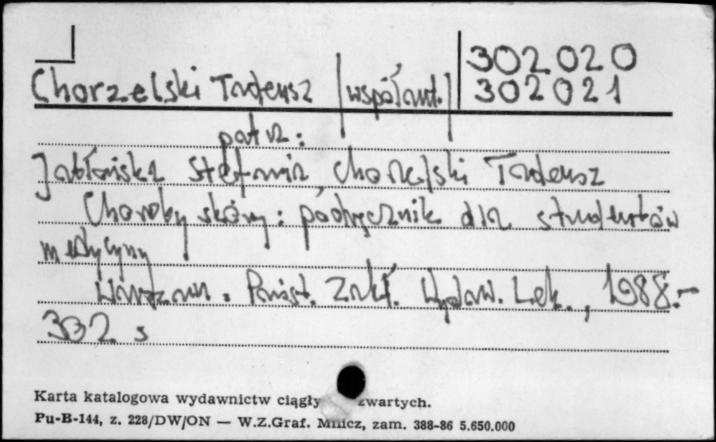 302020
Chorzelski Tadeusz (współaut.) 302021
patrz:
Jabłońska Stefania, Chorzelski Tadeusz
Choroby skóry: podręcznik dla studentów
medycyny
Warszawa. Państ. Zakł. Wydaw. Lek., 1988.-
302 s
Karta katalogowa wydawnictw ciągły zwartych.
Pu-B-144, z. 228/DW/ON — W.Z.Graf. zam. 388-86 5.650.000